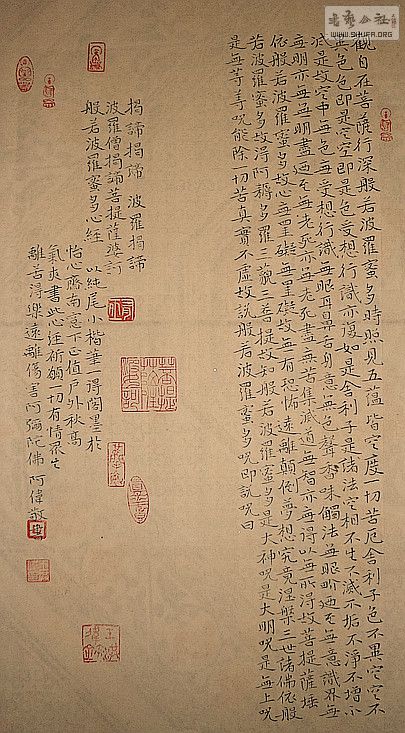 書藝公社
WWW.SHUFA.ORG
觀自在菩薩行深般若波羅蜜多時照見五蘊皆空度一切苦厄舍利子色不異空空不
異色色即是空空即是色受想行識亦復如是舍利子是諸法空相不生不滅不垢不淨不增不
減是故空中无色无受想行識无眼耳鼻舌身意无色聲香味觸法无眼界乃至无意識界无
无明亦无无明盡乃至无老死亦无老死盡无苦集滅道无智亦无得以无所得故菩提薩埵
依般若波羅蜜多故心无罣礙无罣礙故无有恐怖遠離顛倒夢想究竟涅槃三世諸佛依般
若波羅蜜多故得阿耨多羅三藐三菩提故知般若波羅蜜多是大神咒是大明咒是无上咒
是无等等咒能除一切苦真實不虛故說般若波羅蜜多咒即說咒曰
揭諦揭諦 波羅揭諦
波羅僧揭諦菩提薩婆訶
般若波羅蜜多心經 以純尾小楷筆 得閒墨於
怡心齋南窓下正值戶外秋高
氣爽書此心經祈願一切有情眾生
離苦得樂遠離傷害阿彌陀佛 阿偉敬書